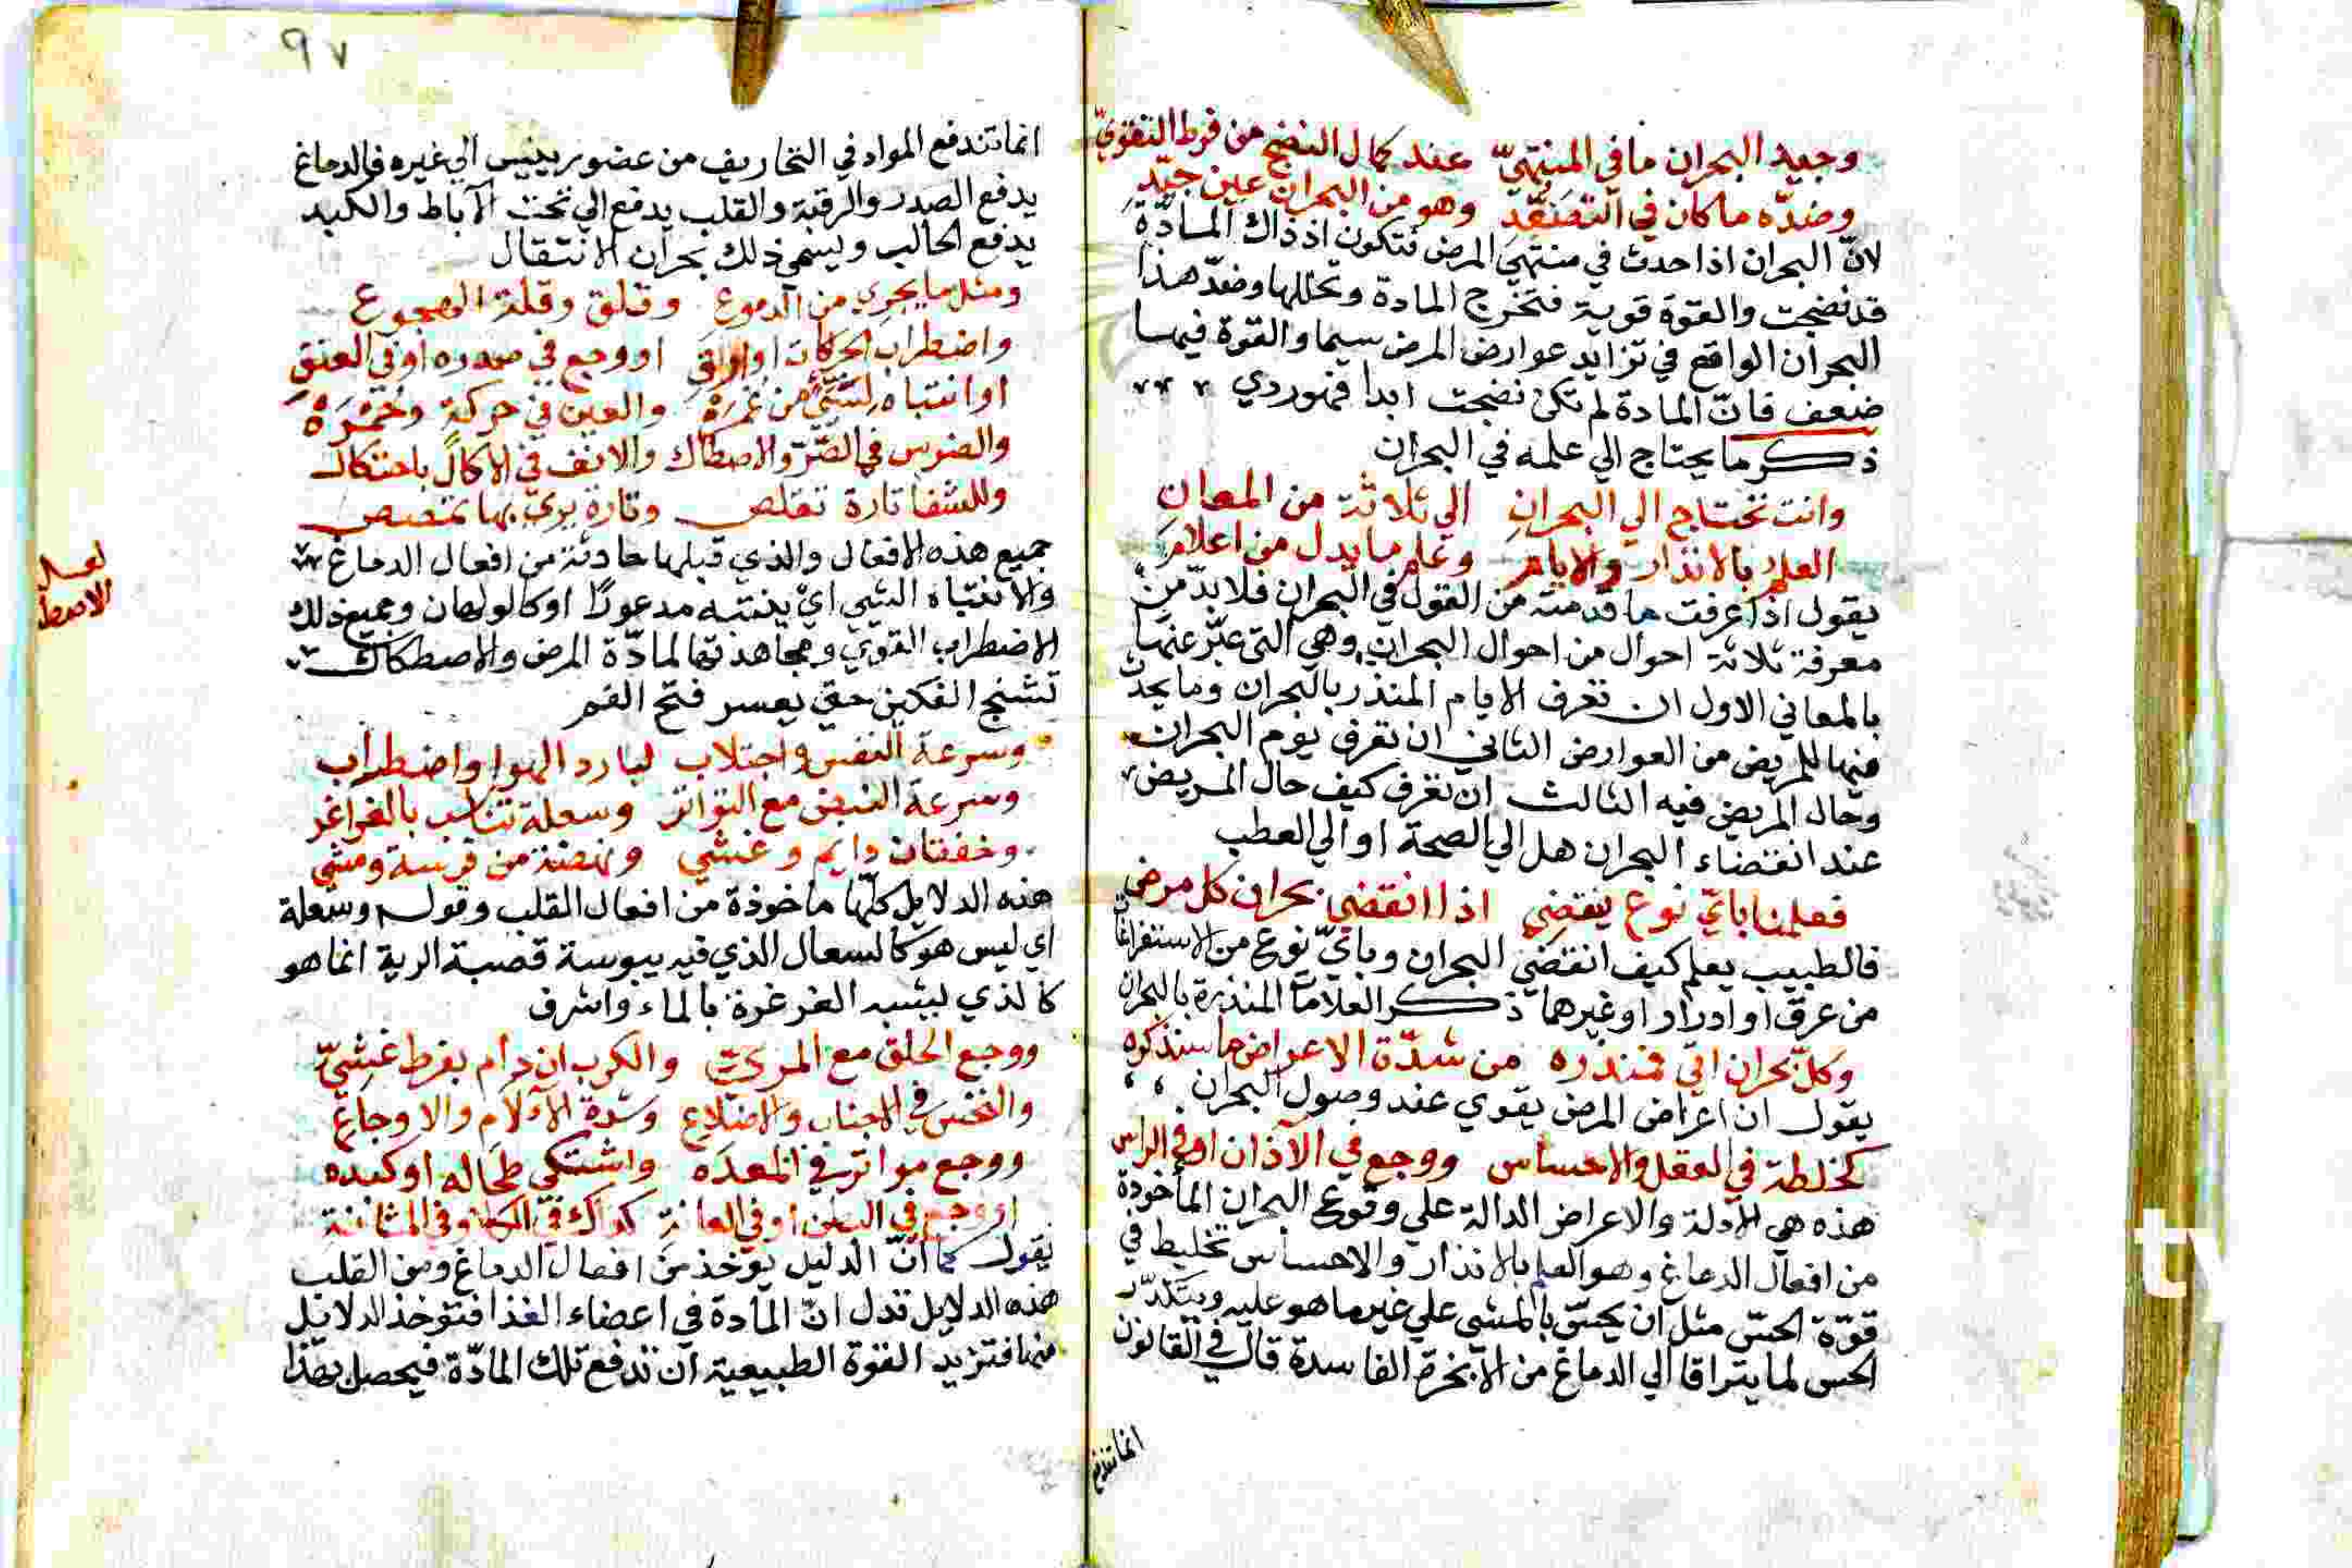 وجيد البحران ما في المنتهيّ عند كمال النضج من فرط التقويّ
وضدّه ما كان في التصَعُّدِ وهو من البحران عين جيّدِ
لانّ البحران اذا حدث في منتهيَ المرض فتكون اذ ذاك المادّة
قد نضجت والقوة قوية فتخرج المادة وتحللها وضدّ هذا
البحران الواقع في تزايد عوارض المرض سيما والقوة فيها
ضعف فانّ المادة لم تكن نضجت ابدا فهوردي
ذكر ما يحتاج الي علمه في البحران
وانت تحتاج الي البحرانِ الي ثلاثة من المعانِ
العلم بالانذار والايام وعلم ما يدل من اعلامِ
يقول اذا عرفت ما قدمته من القول في البحران فلا بدّ من
معرفة ثلاثة احوال من احوال البحران وهي التي عبّر عنها
بالمعاني الاول ان تعرف الايام المنذر بالبحران وما يحدث
فيها للمريض من العوارض الثاني ان تعرف يوم البحران
وحال المريض فيه الثالث ان تعرف كيف حال المريض
عند انقضاء البحران هل الي الصحة او الي العطب
فعلمنا بايّ نوع ينقضي اذا انقضي بحران كل مرض
فالطبيب يعلم كيف انقضي البحران وبايّ نوع من الاستفراغات
من عرق او ادرار او غيرهما ذكر العلامات المنذرة بالبحران
وكلّ بحران اتي فمنذره من شدّة الاعراض ما سنذكره
يقول ان اعراض المرض يقوي عند وصول البحران
كخلطة في العقل والاحساس ووجع في الآذان او في الراس
هذه هي الادلة والاعراض الدالة علي وقوع البحران المأخوذة
من افعال الدماغ وهو العلم بالانذار والاحساس تخليط في
قوّة الحسّ مثل ان يحسّ بالمشي علي غير ما هو عليه ويتكدّر
الحس لما يتراقا الي الدماغ من الابخرة الفاسدة قال في القانون
انما تندفع
٩٧
انما تندفع المواد في التخاريف من عضو رييس الي غيره فالدماغ
يدفع الصدر والرقبة والقلب يدفع الي تحت الآباط والكبد
يدفع الحالب ويسمي ذلك بحران الانتقال
ومثل ما يجري من الدموع وقلق وقلة الهجوع
واضطراب الحركات او ارقِ او وجع في صدره او في العنقِ
او انتباه لشيئ من والعين في حركة وحُمْرَةْ
والضرس في الصّرّ والاصطاك والانف في الاكال باحتكاك
وللشفا تارة تقلص وتارة يري بها تمصيص
جميع هذه الافعال والذي قبلها حادثة من افعال الدماغ
والانتباه الشي اي ينتبه مدعورًا او كالولهان وجميع ذلك
الاضطراب القوي ومجاهدتها لمادّة المرض والاصطكاك
تشنج الفكين حتي يعسر فتح الفم
لعله
الاصط
وسرعة النفس واجتلاب لبارد الهوا واضطراب
وسرعة النبض مع التواتر وسعلة تناسب بالغراغر
وخفقان دايم وغشي ونهضة من فرسة ومشي
هذه الدلايل كلّها ماخوذة من افعال القلب وقوله وسعلة
اي ليس هو كالسعال الذي فيه يبوسة قصبة الرية انما هو
كالذي يشبه الغرغرة بالماء واشرف
ووجع الحلق مع المريّ والكرب ان دام بفرط غشيّ
والنخس في الاجناب والاضلاع وشدة الآلام والاوجاع
ووجع مواتر في المعدَه واشتكي طحاله او كبده
او وجع في البطن او في العانة كذاك في الكلا وفي المثانة
يقول كما انّ الدليل يؤخذ من افعال الدماغ ومن القلب
هذه الدلايل تدل انّ المادة في اعضاء الغذا فتؤخذ الدلايل
منها فتزيد القوة الطبيعية ان تدفع تلك المادّة فيحصل بهذا